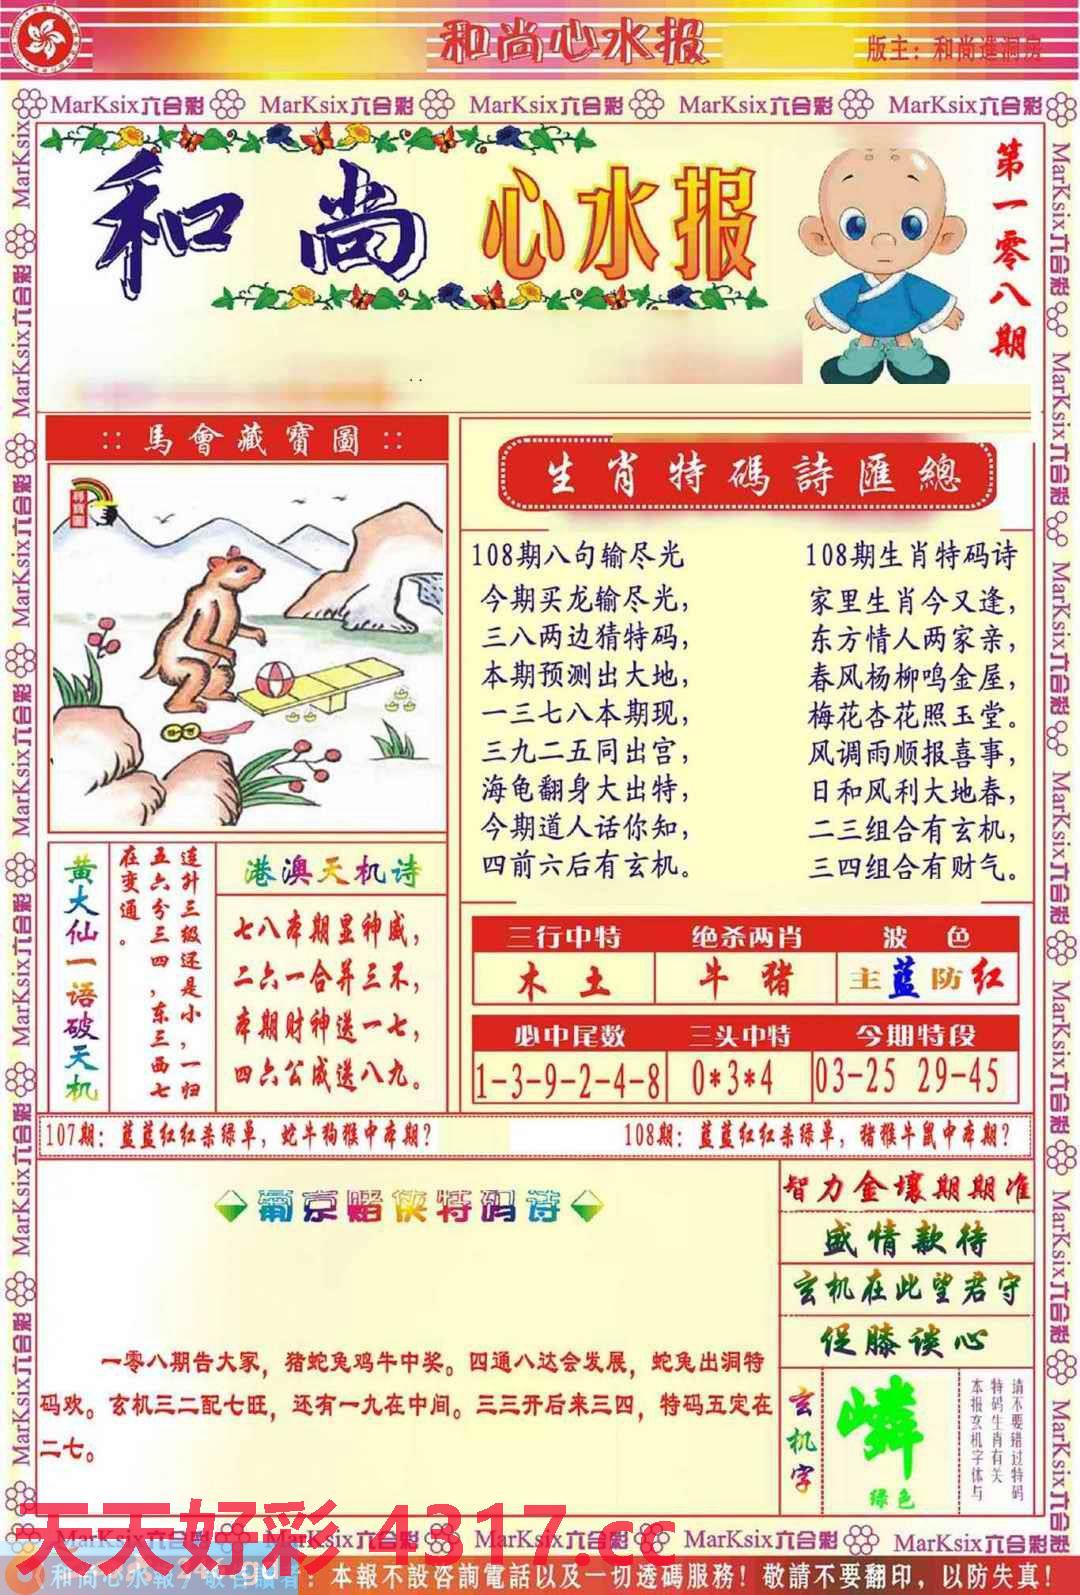 和尚心水报
版主：和尚進洞房
MarKsix六合彩 MarKsix六合彩 MarKsix六合彩 MarKsix六合彩 MarKsix六合彩
和尚 心水报
第一零八期
::馬會藏寶圖::
尋寶圖
生肖特碼詩匯總
108期八句输尽光
今期买龙输尽光，
三八两边猜特码，
本期预测出大地，
一三七八本期现，
三九二五同出宫，
海龟翻身大出特，
今期道人话你知，
四前六后有玄机。
108期生肖特码诗
家里生肖今又逢，
东方情人两家亲，
春风杨柳鸣金屋，
梅花杏花照玉堂。
风调雨顺报喜事，
日和风利大地春，
二三组合有玄机，
三四组合有财气。
黄大仙一语破天机
连升三级还是小，一归
五六分三四，东三西七
在变通。
港澳天机诗
七八本期显神威，
二六一合并三不，
本期财神送一七，
四六公成送八九。
三行中特 绝杀两肖 波色
木土 牛猪 主蓝防红
必中尾数 三头中特 今期特段
1-3-9-2-4-8 0*3*4 03-25 29-45
107期：蓝蓝红红杀绿单，蛇牛狗猴中本期？
108期：蓝蓝红红杀绿单，猪猴牛鼠中本期？
葡京赌侠特码诗
一零八期告大家，猪蛇兔鸡牛中奖。四通八达会发展，蛇兔出洞特
码欢。玄机三二配七旺，还有一九在中间。三三开后来三四，特码五定在
二七。
智力金壤期期准
盛情款待
玄机在此望君守
促膝谈心
玄机字
嶙
绿色
请不要错过特码
特码生肖有关
本报玄机字体与
天天好彩 4317.cc
MarKsix六合彩 MarKsix六合彩 MarKsix六合彩 MarKsix六合彩 MarKsix六合彩
本報不設咨詢電話以及一切透碼服務！敬請不要翻印，以防失真！